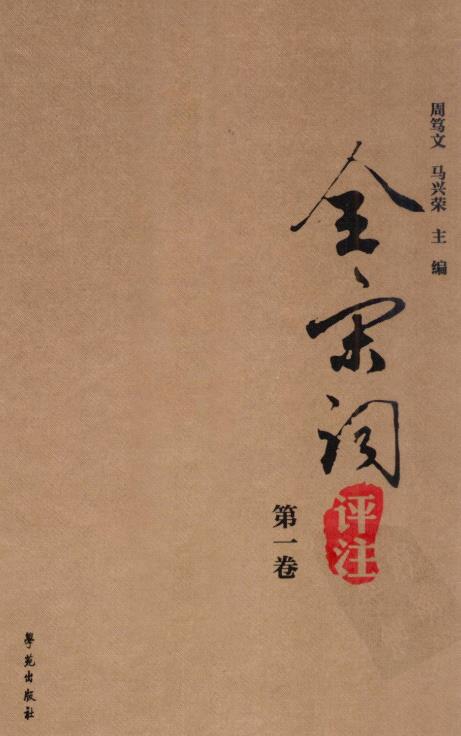 周笃文 马兴荣 主 编
全宋词
评注
第一卷
學苑出版社